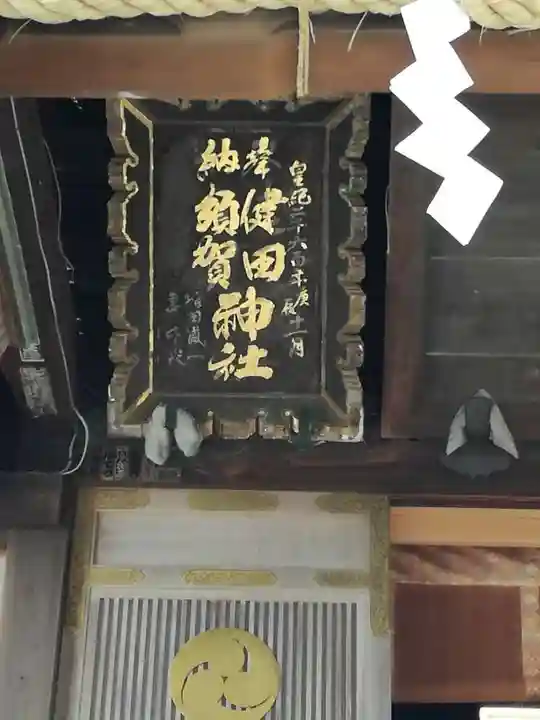 皇紀二千六百年庚辰十一月
奉 健田
納 須賀 神社